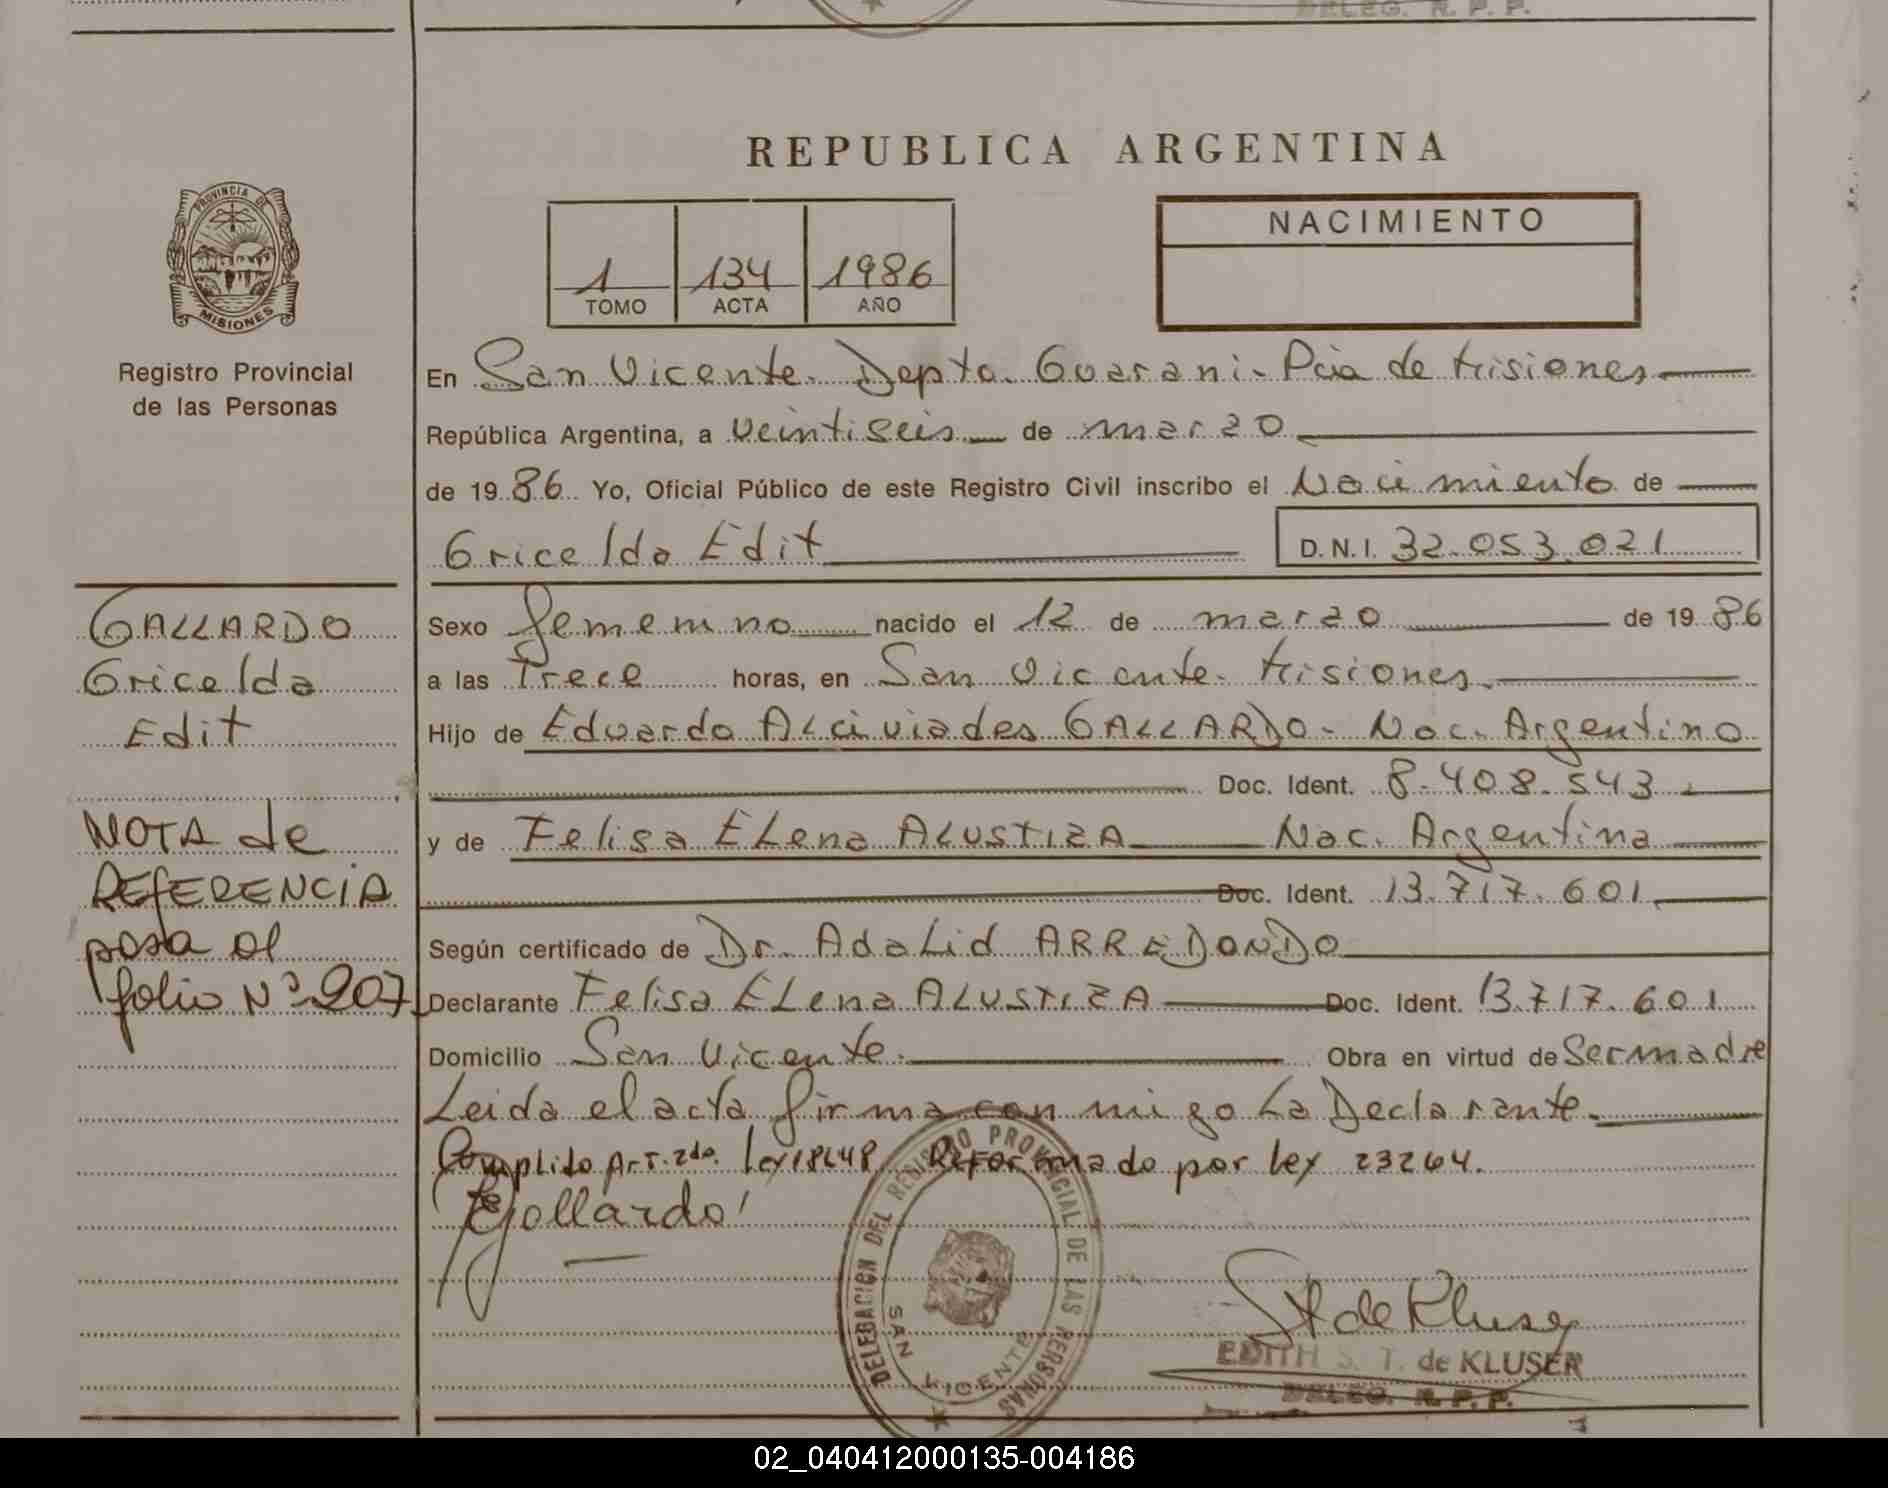 DELEG. R. P. P.
REPUBLICA ARGENTINA
PROVINCIA DE
MISIONES
Registro Provincial
de las Personas
1 134 1986
TOMO ACTA AÑO
NACIMIENTO
En San Vicente. Depto. Guarani - Pcia de Misiones
República Argentina, a veintiseis de marzo
de 1986 Yo, Oficial Público de este Registro Civil inscribo el Nacimiento de
Gricelda Edit
D.N.I. 32.053.021
GALLARDO
Gricelda
Edit
NOTA de
REFERENCIA
pasa al
folio Nº 207
Sexo femenino nacido el 12 de marzo de 1986
a las Trece horas, en San Vicente. Misiones.
Hijo de Eduardo ALciviades GALLARDO - Nac. Argentino
Doc. Ident. 8.408.543.
y de Felisa ELena ALUSTIZA Nac. Argentina
Doc. Ident. 13.717.601.
Según certificado de Dr. AdaLid ARREDONDO
Declarante Felisa ELena ALUSTIZA Doc. Ident. 13.717.601
Domicilio San Vicente. Obra en virtud de Ser madre
Leida el acta firma con migo La Declarante.
Complido Art. 2do. ley 18248 Reformado por ley 23264.
Gallardo
DELEGACION DEL REGISTRO PROVINCIAL DE LAS PERSONAS
SAN VICENTE
St de Kluser
EDITH S. T. de KLUSER
DELEG. R. P. P.
02_040412000135-004186